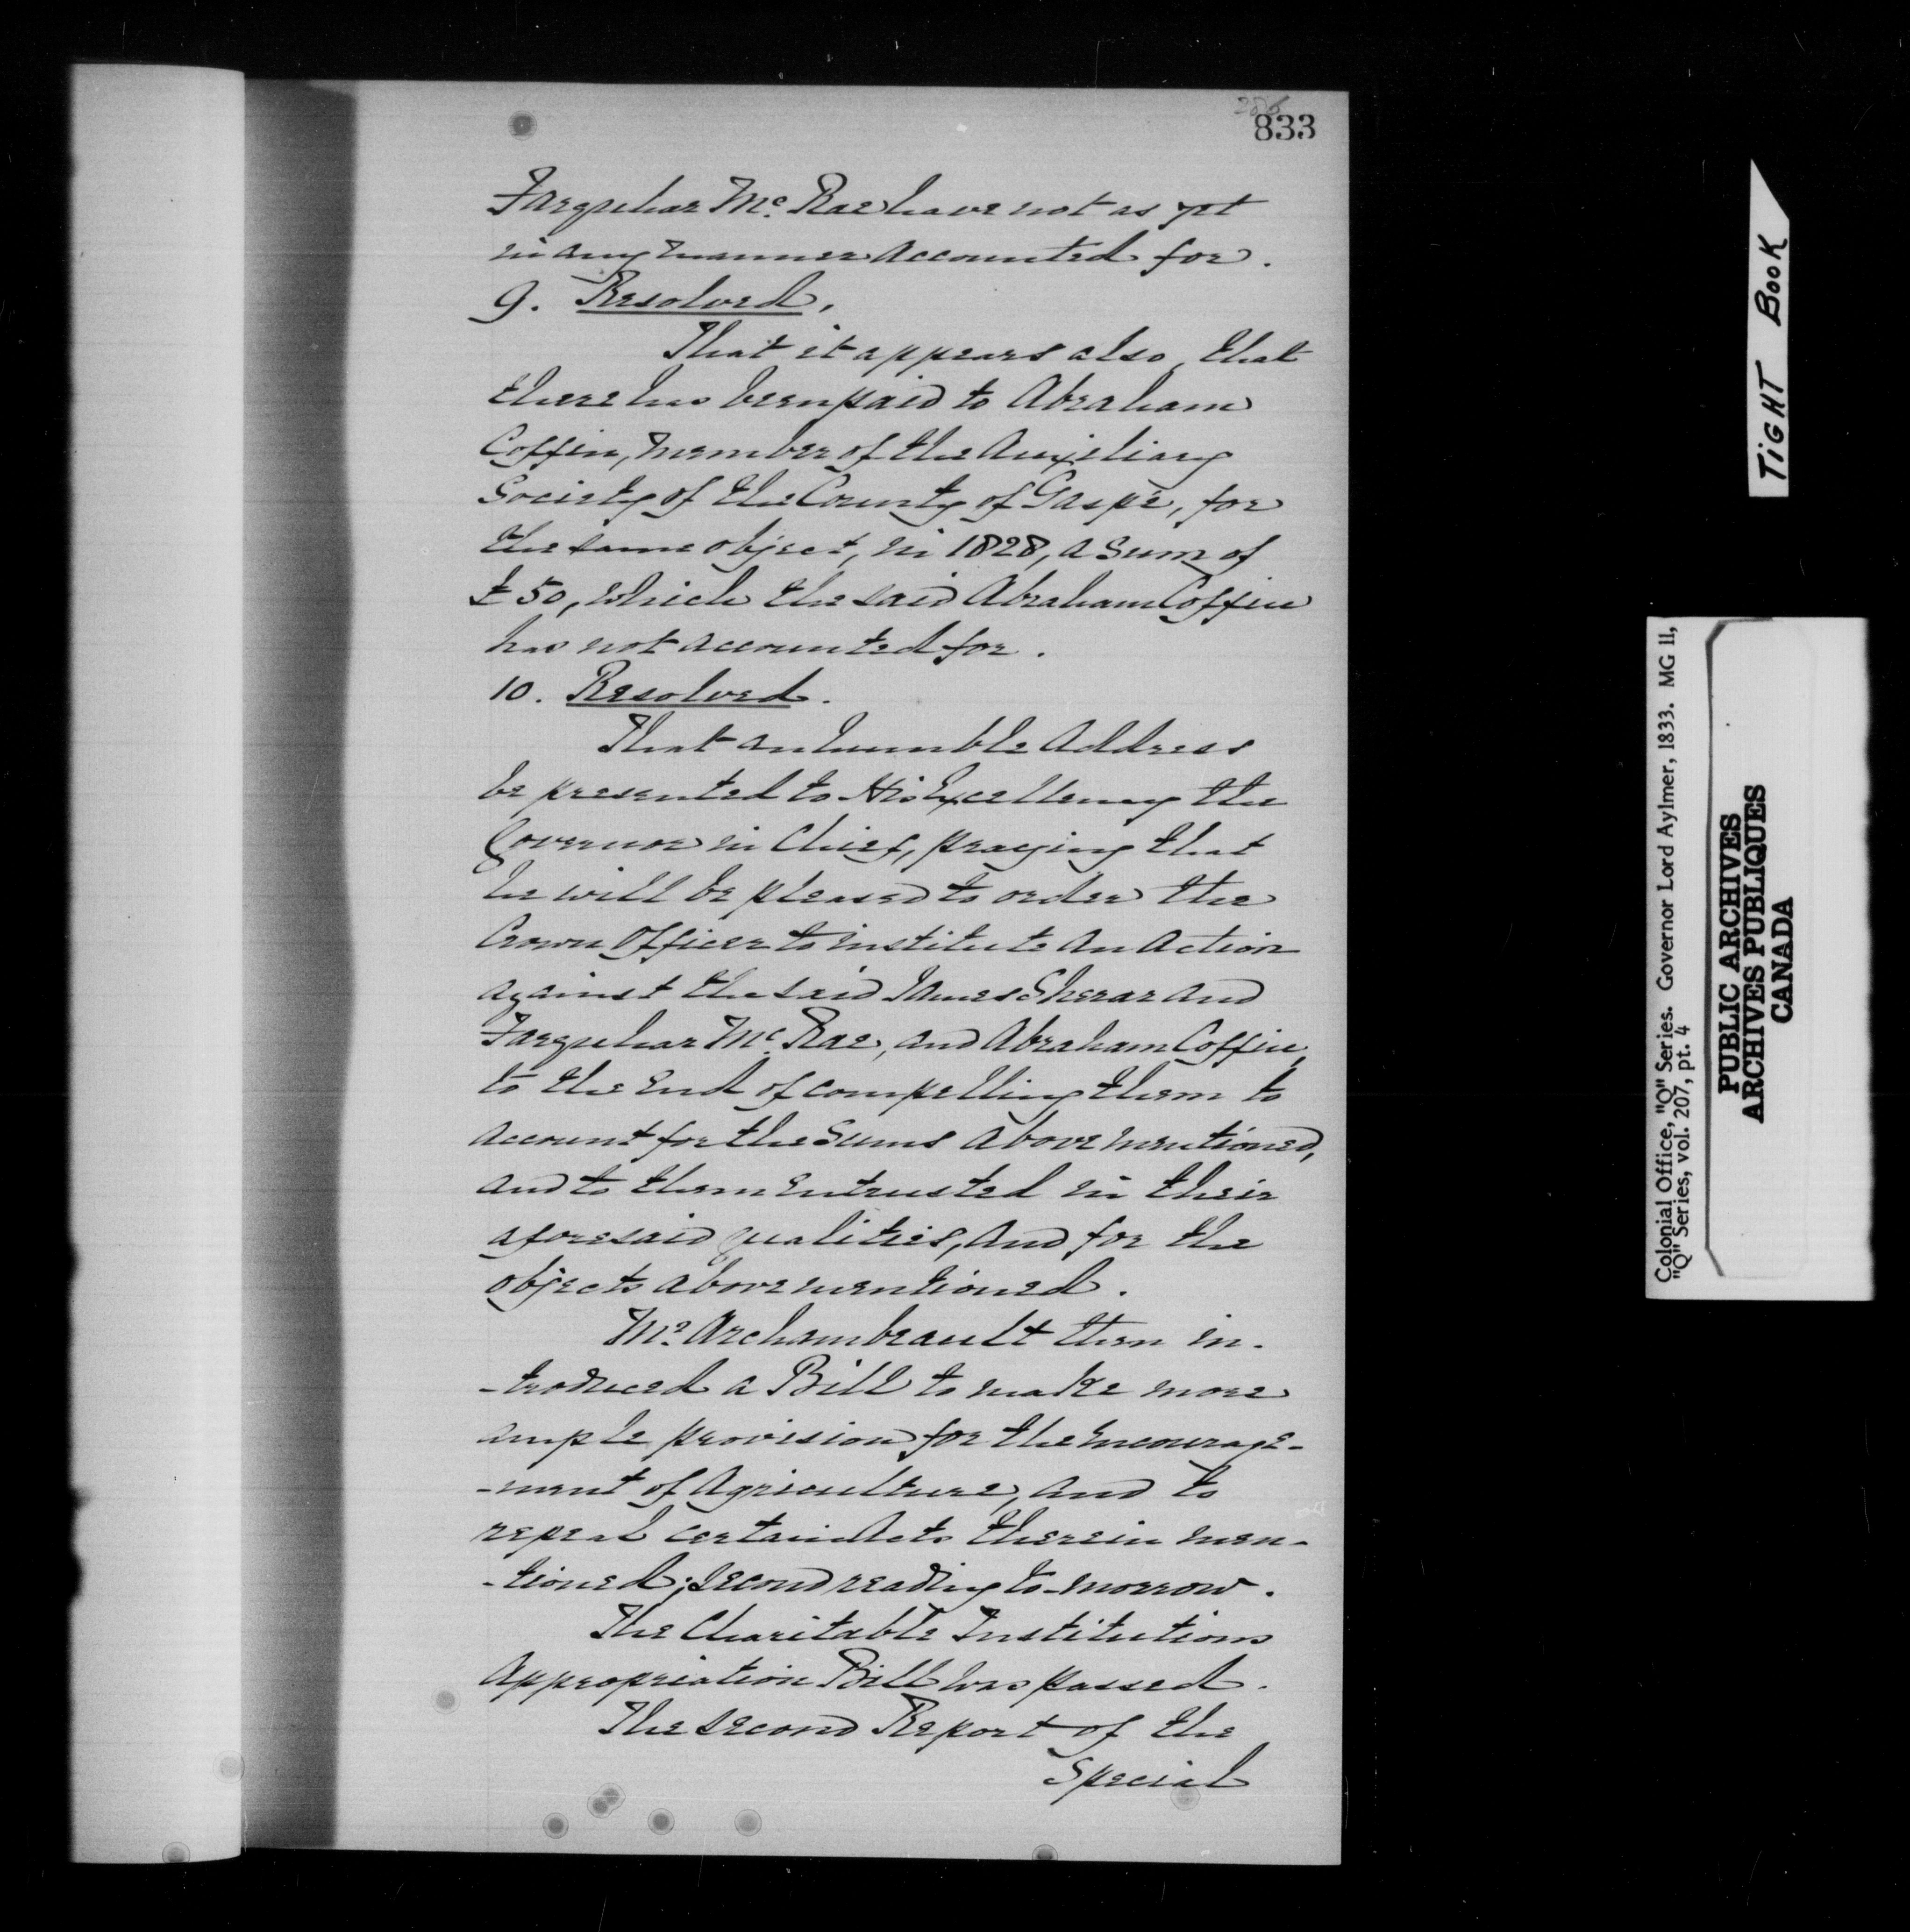 833
Farquhar Mc. Rae have not as yet
in any manner accounted for.
9. Resolved,
That it appears also, that
there has been paid to Abraham
Coffin, member of the Auxiliary
Society of the County of Gaspé, for
the same object, in 1828, a Sum of
£50, which the said Abraham Coffin
has not accounted for.
10. Resolved.
That an humble Address
be presented to His Excellency the
Governor in Chief, praying that
he will be pleased to order the
Crown Officer to institute an action
against the said James Sherar and
Farquhar Mc. Rae, and Abraham Coffin,
to the End of compelling them to
account for the Sums above mentioned,
and to them Entrusted in their
aforesaid qualities, and for the
objects above mentioned.
Mr. Archambeault then in-
-troduced a Bill to make more
ample provision for the Encourage-
-ment of Agriculture, and to
repeal certain Acts therein men-
-tioned; Second reading to-morrow.
The Charitable Institutions
Appropriation Bill was passed.
The Second Report of the
Special
TIGHT BOOK
Colonial Office, "Q" Series. Governor Lord Aylmer, 1833. MG 11,
"Q" Series, vol. 207, pt. 4
PUBLIC ARCHIVES
ARCHIVES PUBLIQUES
CANADA